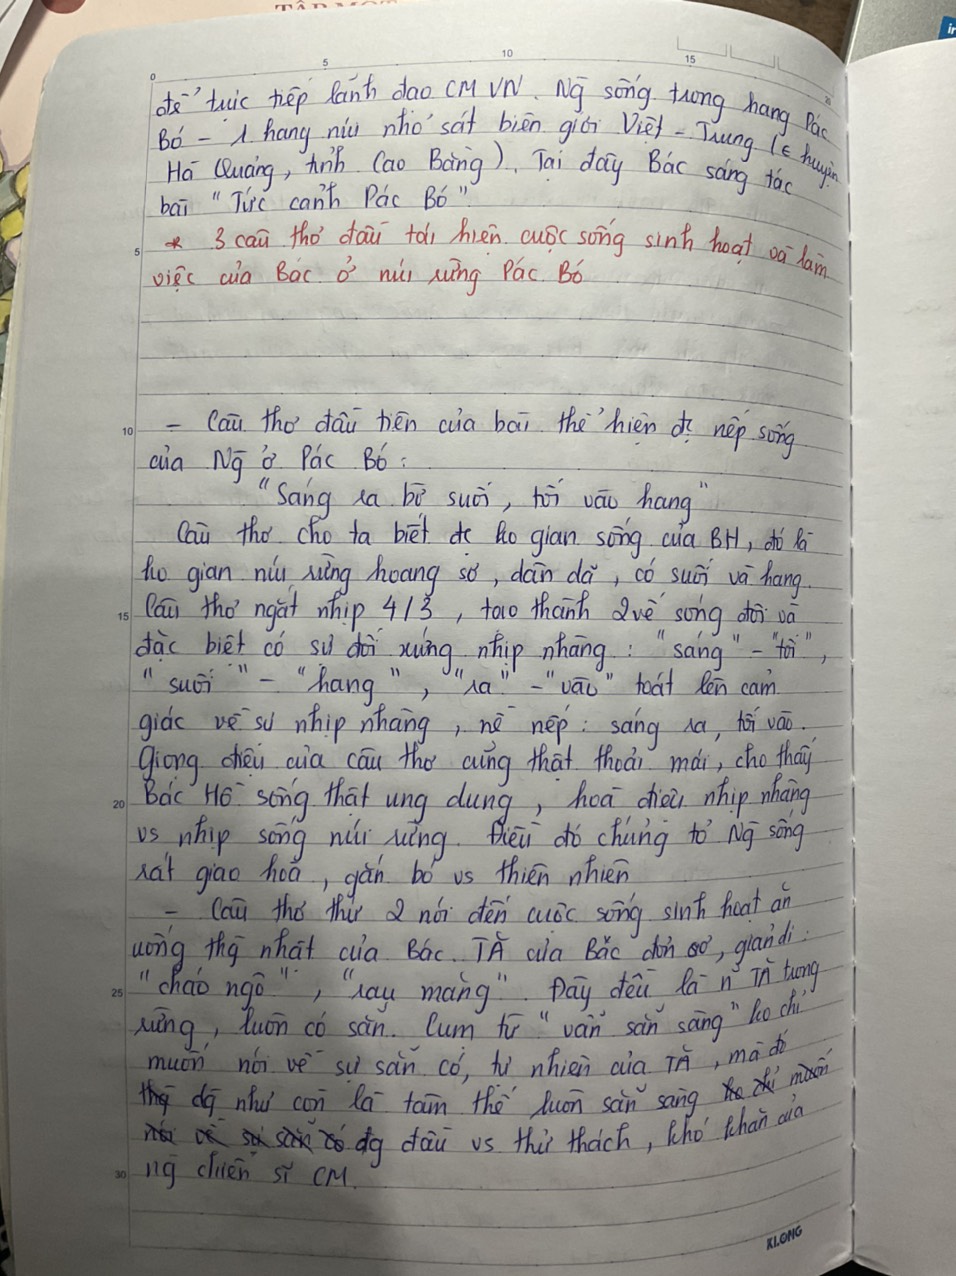 TẬP MỘT
0 5 10 15 20
để trực tiếp lãnh đạo CM VN. Ng sống trong hang Pác
Bó - 1 hang núi nhỏ sát biên giới Việt - Trung (ε huyện
Hà Quảng, tỉnh Cao Bằng). Tại đây Bác sáng tác
bài "Tức cảnh Pác Bó"
* 3 câu thơ đầu tái hiện cuộc sống sinh hoạt và làm
5
việc của Bác ở núi rừng Pác Bó
- Câu thơ đầu tiên của bài thể hiện đc nếp sống
10
của Ng ở Pác Bó:
"Sáng ra bờ suối, tối vào hang"
Câu thơ cho ta biết đc ko gian sống của BH, đó là
ko gian núi rừng hoang sơ, dân dã, có suối và hang.
15 Câu thơ ngắt nhịp 4/3, tạo thành 2 vế sóng đôi và
đặc biệt có sự đối xứng nhịp nhàng: "sáng" - "tối",
"suối" - "hang", "ra" - "vào" toát lên cảm
giác về sự nhịp nhàng, nề nếp: sáng ra, tối vào.
Giọng điệu của câu thơ cũng thật thoải mái, cho thấy
20 Bác Hồ sống thật ung dung, hoà điệu nhịp nhàng
vs nhịp sống núi rừng. Điều đó chứng tỏ Ng sống
rất giao hoà, gắn bó vs thiên nhiên
- Câu thơ thứ 2 nói đến cuộc sống sinh hoạt ăn
uống thg nhật của Bác. TĂ của Bác đơn sơ, giản dị:
25 "cháo ngô", "rau măng". Đây đều là n~ TĂ trong
rừng, luôn có sẵn. Cụm từ "vẫn sẵn sàng" ko chỉ
muốn nói về sự sẵn có, tự nhiên của TĂ, mà đó
dg như còn là tâm thế luôn sẵn sàng
đg đầu vs thử thách, khó khăn của
30 ng chiến sĩ CM.
KLONG